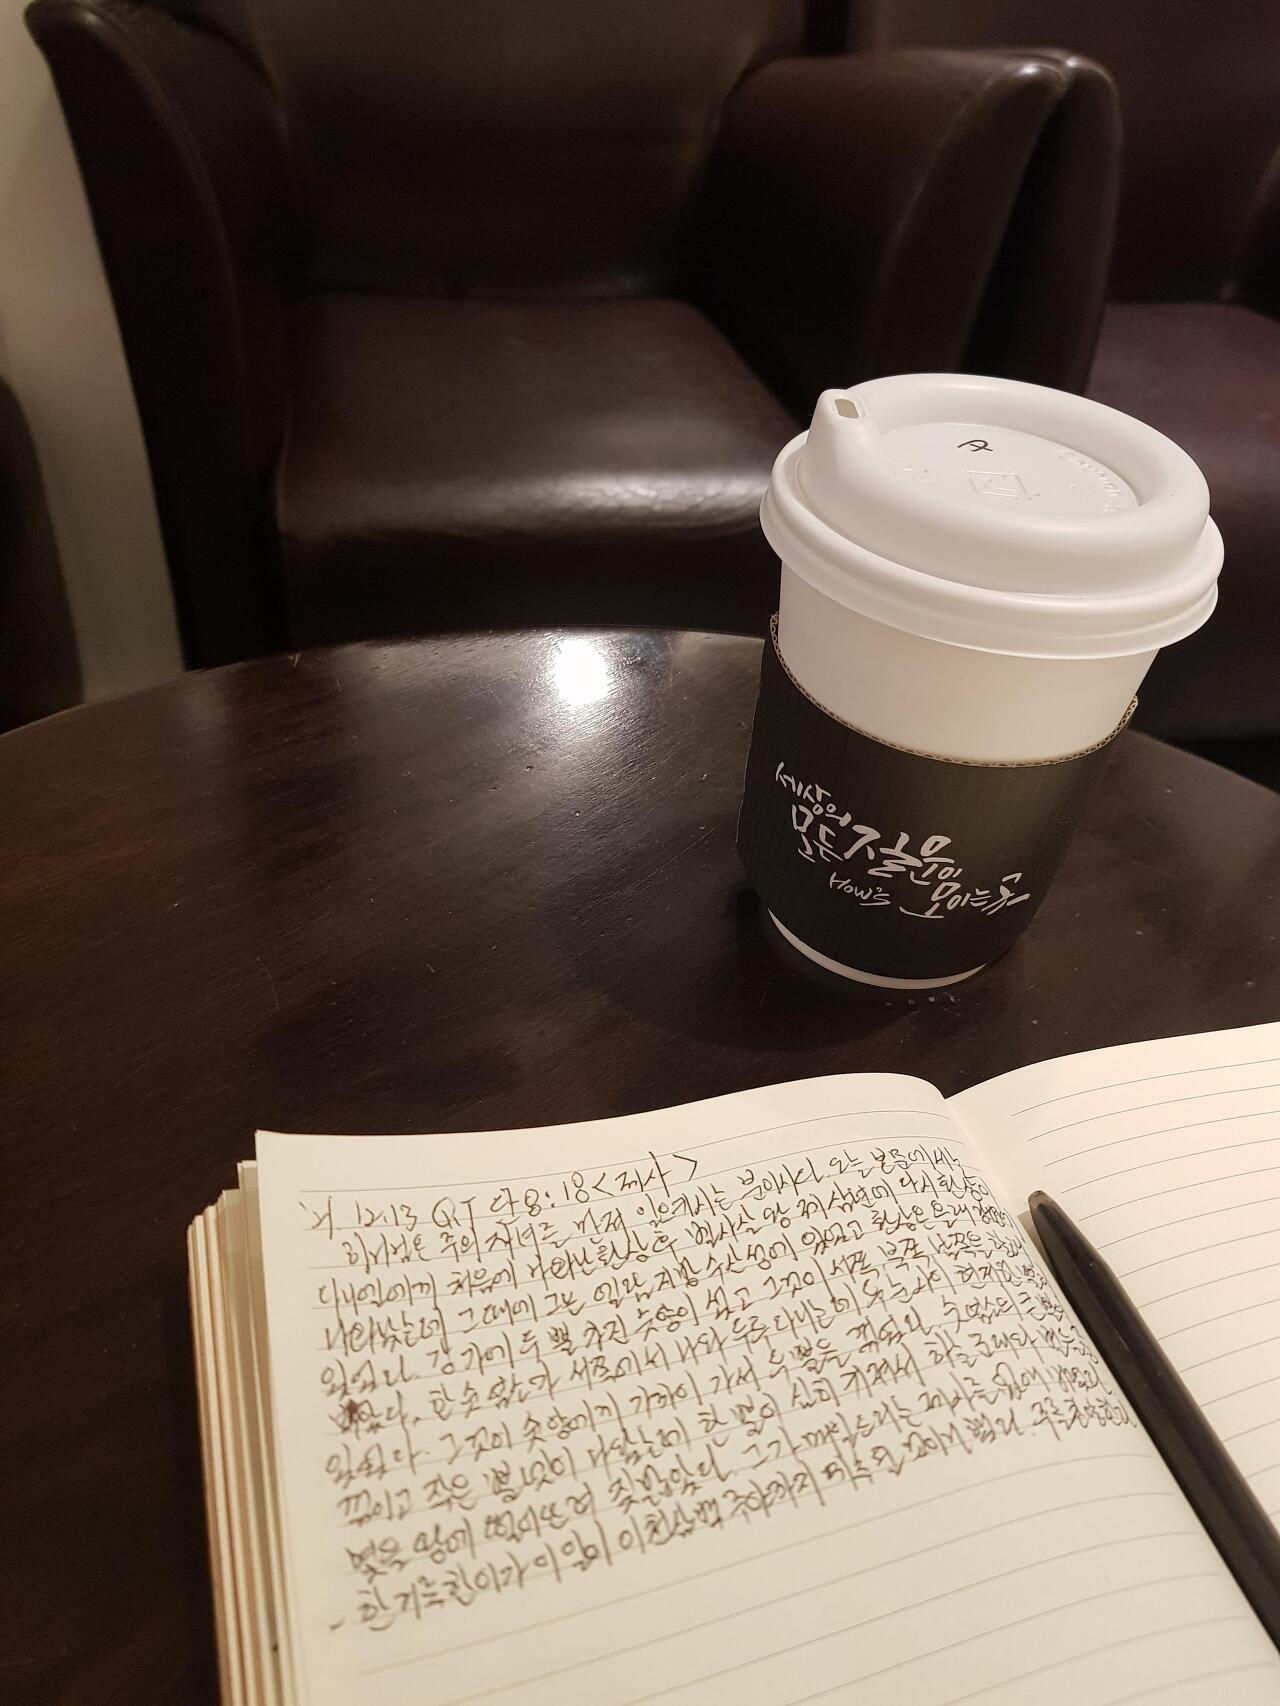 A
세상의
모든 질문이
How's 모이는 곳
'21. 12.13 QT 단8:18 <제사>
주의 자녀를 먼저 일으키시는 분이시다. 오늘 본문에서는
다니엘에게 처음에 나타난 환상 후 벨사살 왕 제삼년에 다시 환상이
나타났는데 그 때에 그는 엘람 지방 수산성에 있었고 환상은 을래 강변에
있었다. 강가에 두 뿔 가진 숫양이 섰고 그것이 서쪽 북쪽 남쪽을 향하여
한 숫염소가 서쪽에서 나와 두루 다니는데 두 눈 사이 현저한 뿔이
있었다. 그것이 숫양에게 가까이 가서 두 뿔을 꺾었다. 숫염소의 큰 뿔이
꺾이고 작은 뿔 넷이 나왔는데 한 뿔이 심히 커져서 하늘 군대와 별들 중
몇을 땅에 떨어뜨려 짓밟았다. 그가 매일 드리는 제사를 없애 버렸고
- 한 거룩한 이가 이 일이 이천삼백 주야까지